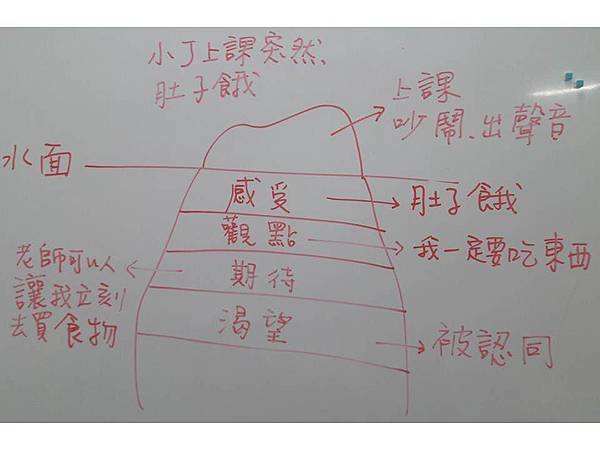 小丁上課突然、
肚子餓
上課
吵鬧、出聲音
水面
感受
肚子餓
觀點
我一定要吃東西
期待
老師可以
讓我立刻
去買食物
渴望
被認同